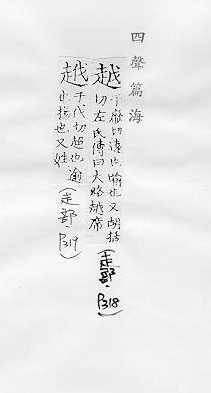 四聲篇海
越于厥切遠也踰也又胡括
切左氏傳曰大路越席
(走部.P318)
越于伐切超也逾
也揚也又姓(走部.P319)